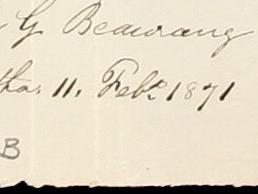 G Beaurang
tha. 11. Feb. 1871
B